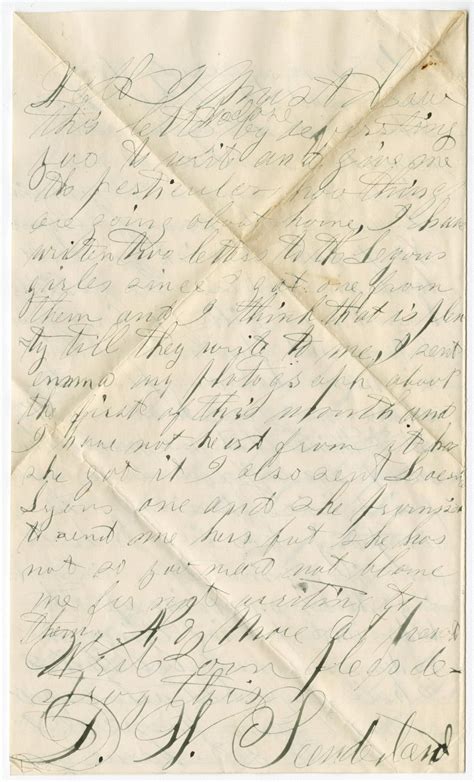 Well I must draw
this letter to ^a close^ by requesting
you to writ and give me
the perticulers how things
are going about home, I have
written two letters to the Lyons
girles since I got one from
them and I think that is plen
ty till they write to me, I sent
emma my photograph about
the first of this month and
I have not heard from it
she got it I also sent
Lyons one and she promised
to send me hers but she has
not so you must not blame
me for not writing to
them No More at present
Writ soon pleas de-
stroy this
D. W. Sunderland